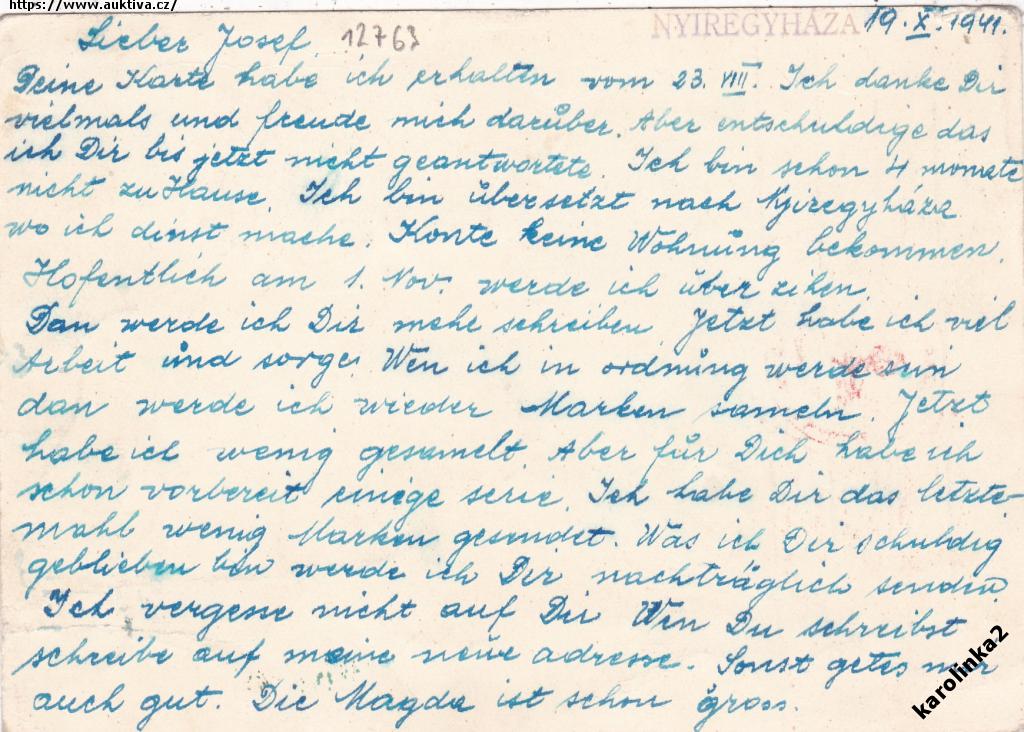 https://www.auktiva.cz/
NYIREGYHÁZA 19. X. 1941.
Lieber Josef, 12763
Deine Karte habe ich erhalten vom 23. VIII. Ich danke Dir
vielmals und freude mich darüber. Aber entschuldige das
ich Dir bis jetzt nicht geantwortete. Ich bin schon 4 monate
nicht zu Hause. Ich bin übersetzt nach Nyiregyháza
wo ich dinst mache. Konte keine Wohnung bekommen.
Hofentlich am 1. Nov. werde ich über zihen.
Dan werde ich Dir mehe schreiben Jetzt habe ich viel
Arbeit und sorge. Wen ich in ordnung werde sein
dan werde ich wieder Marken sameln. Jetzt
habe ich wenig gesamelt. Aber für Dich habe ich
schon vorbereit einége serie. Ich habe Dir das letzte-
mahl wenig Marken gesendet. Was ich Dir schuldig
geblieben bin werde ich Dir nachträglich senden.
Ich vergesse nicht auf Dir Wen Du schreibst
schreibe auf meine neue adresse. Sonst getes mir
auch gut. Die Magda ist schon gross.
karolinka2